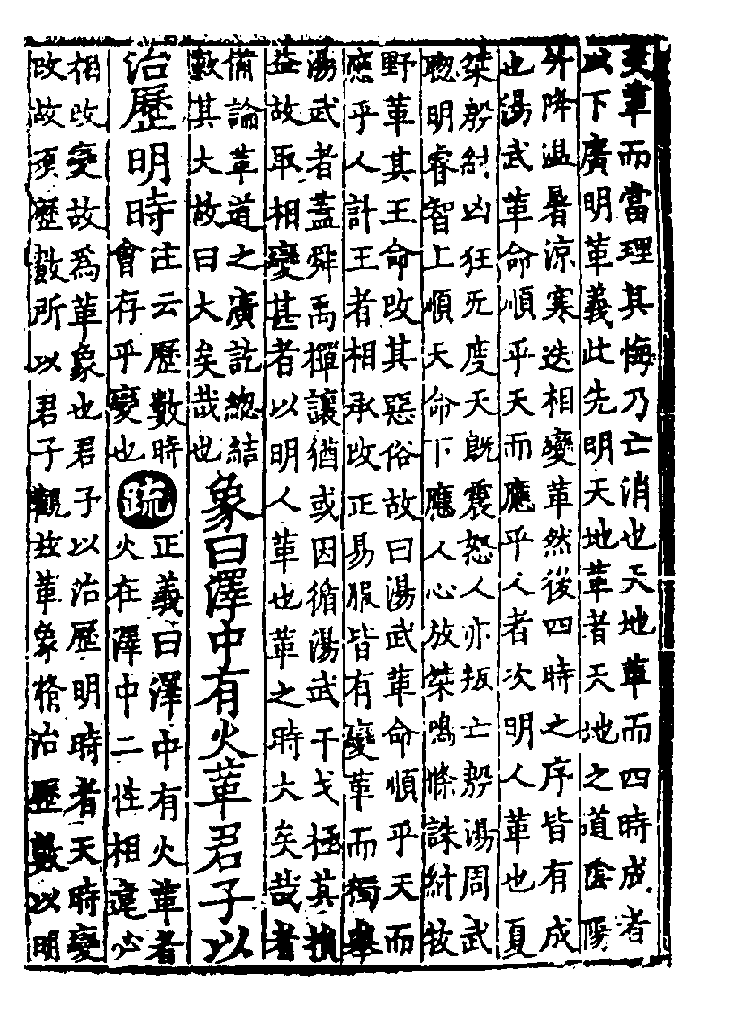 矣革而當理其悔乃亡消也天地革而四時成者
以下廣明革義此先明天地革者天地之道陰陽
升降温暑涼寒迭相變革然後四時之序皆有成
也湯武革命順乎天而應乎人者次明人革也夏
桀殷紂凶狂无度天旣震怒人亦叛亡殷湯周武
聦明睿智上順天命下應人心放桀鳴條誅紂牧
野革其王命改其惡俗故曰湯武革命順乎天而
應乎人計王者相承改正易服皆有變革而獨舉
湯武者蓋舜禹禪讓猶或因循湯武干戈極其損
益故取相變甚者以明人革也革之時大矣哉者
備論革道之廣訖總結
歎其大故曰大矣哉也
象曰澤中有火革君子以
治歷明時
注云歷數時
會存乎變也
疏
正義曰澤中有火革者
火在澤中二性相違必
相改變故爲革象也君子以治歷明時者天時變
改故須歷數所以君子觀兹革象脩治歷數以明